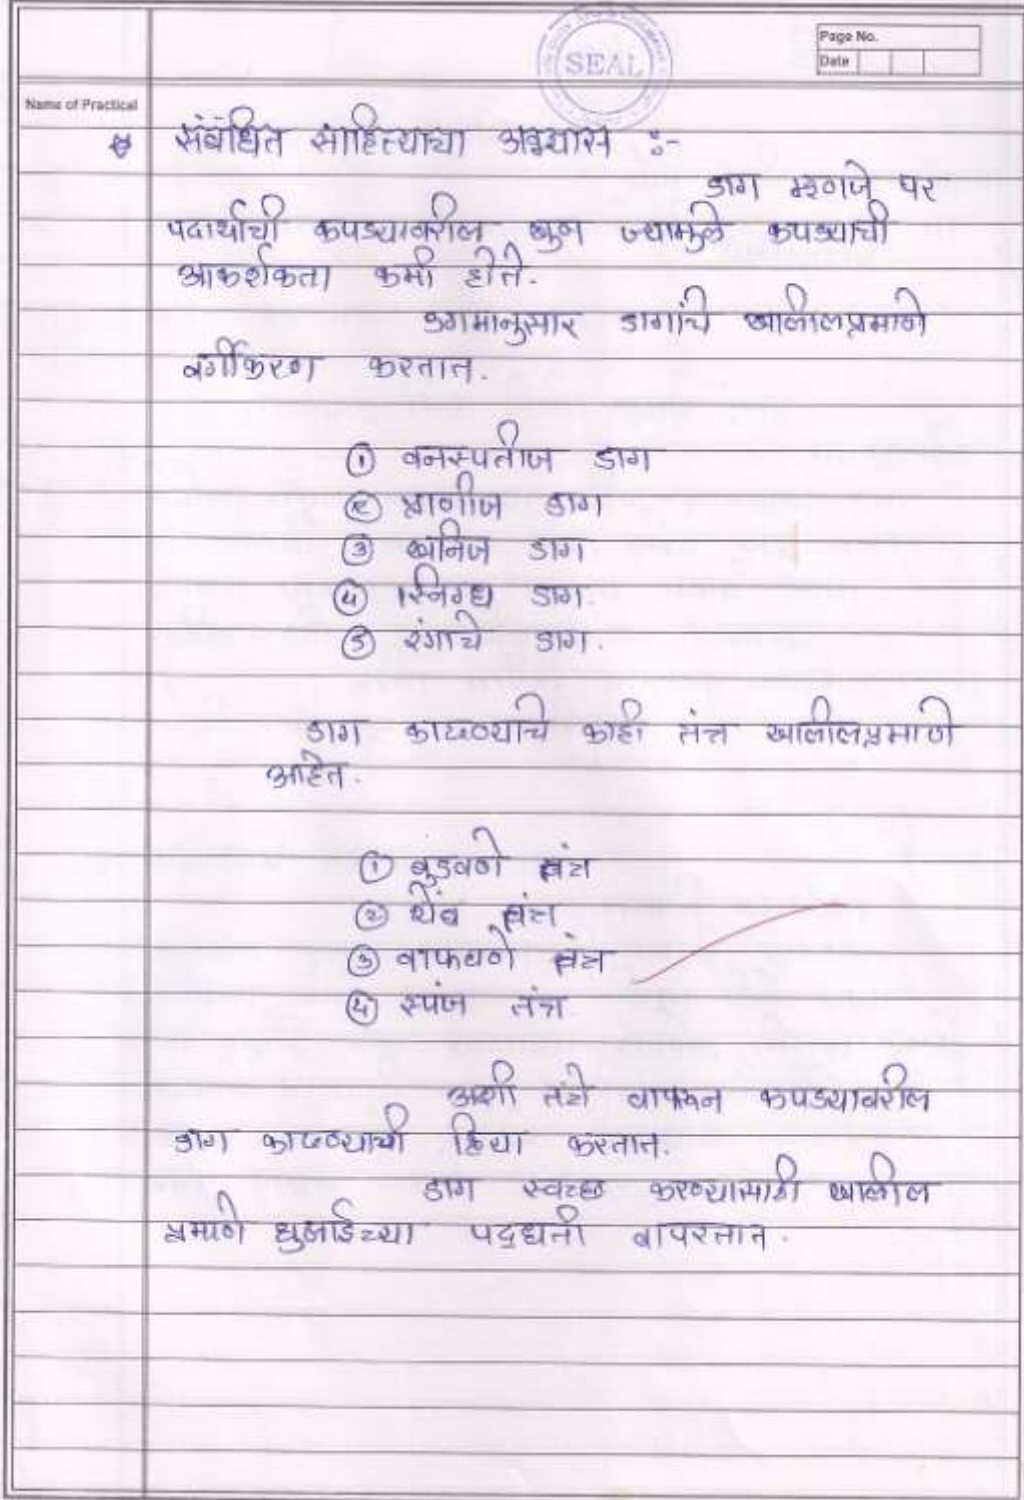 SEAL
Page No.
Date
Name of Practical
संबंधित साहित्याचा अभ्यास :-
डाग म्हणजे पर
पदार्थाची कपड्यावरील खुण ज्यामुळे कपड्याची
आकर्शकता कमी होते.
उगमानुसार डागांचे खालीलप्रमाणे
वर्गीकरण करतात.
① वनस्पतीज डाग
② प्राणीज डाग
③ खनिज डाग
④ स्निग्ध डाग.
⑤ रंगाचे डाग.
डाग काढण्याचे काही तंत्र खालीलप्रमाणे
आहेत.
① बुडवणे तंत्र
② थेंब तंत्र
③ वाफवणे तंत्र
④ स्पंज तंत्र
अशी तंत्रे वापरून कपड्यावरील
डाग काढण्याची क्रिया करतात.
डाग स्वच्छ करण्यासाठी खालील
प्रमाणे धुलाईच्या पद्धती वापरतात.